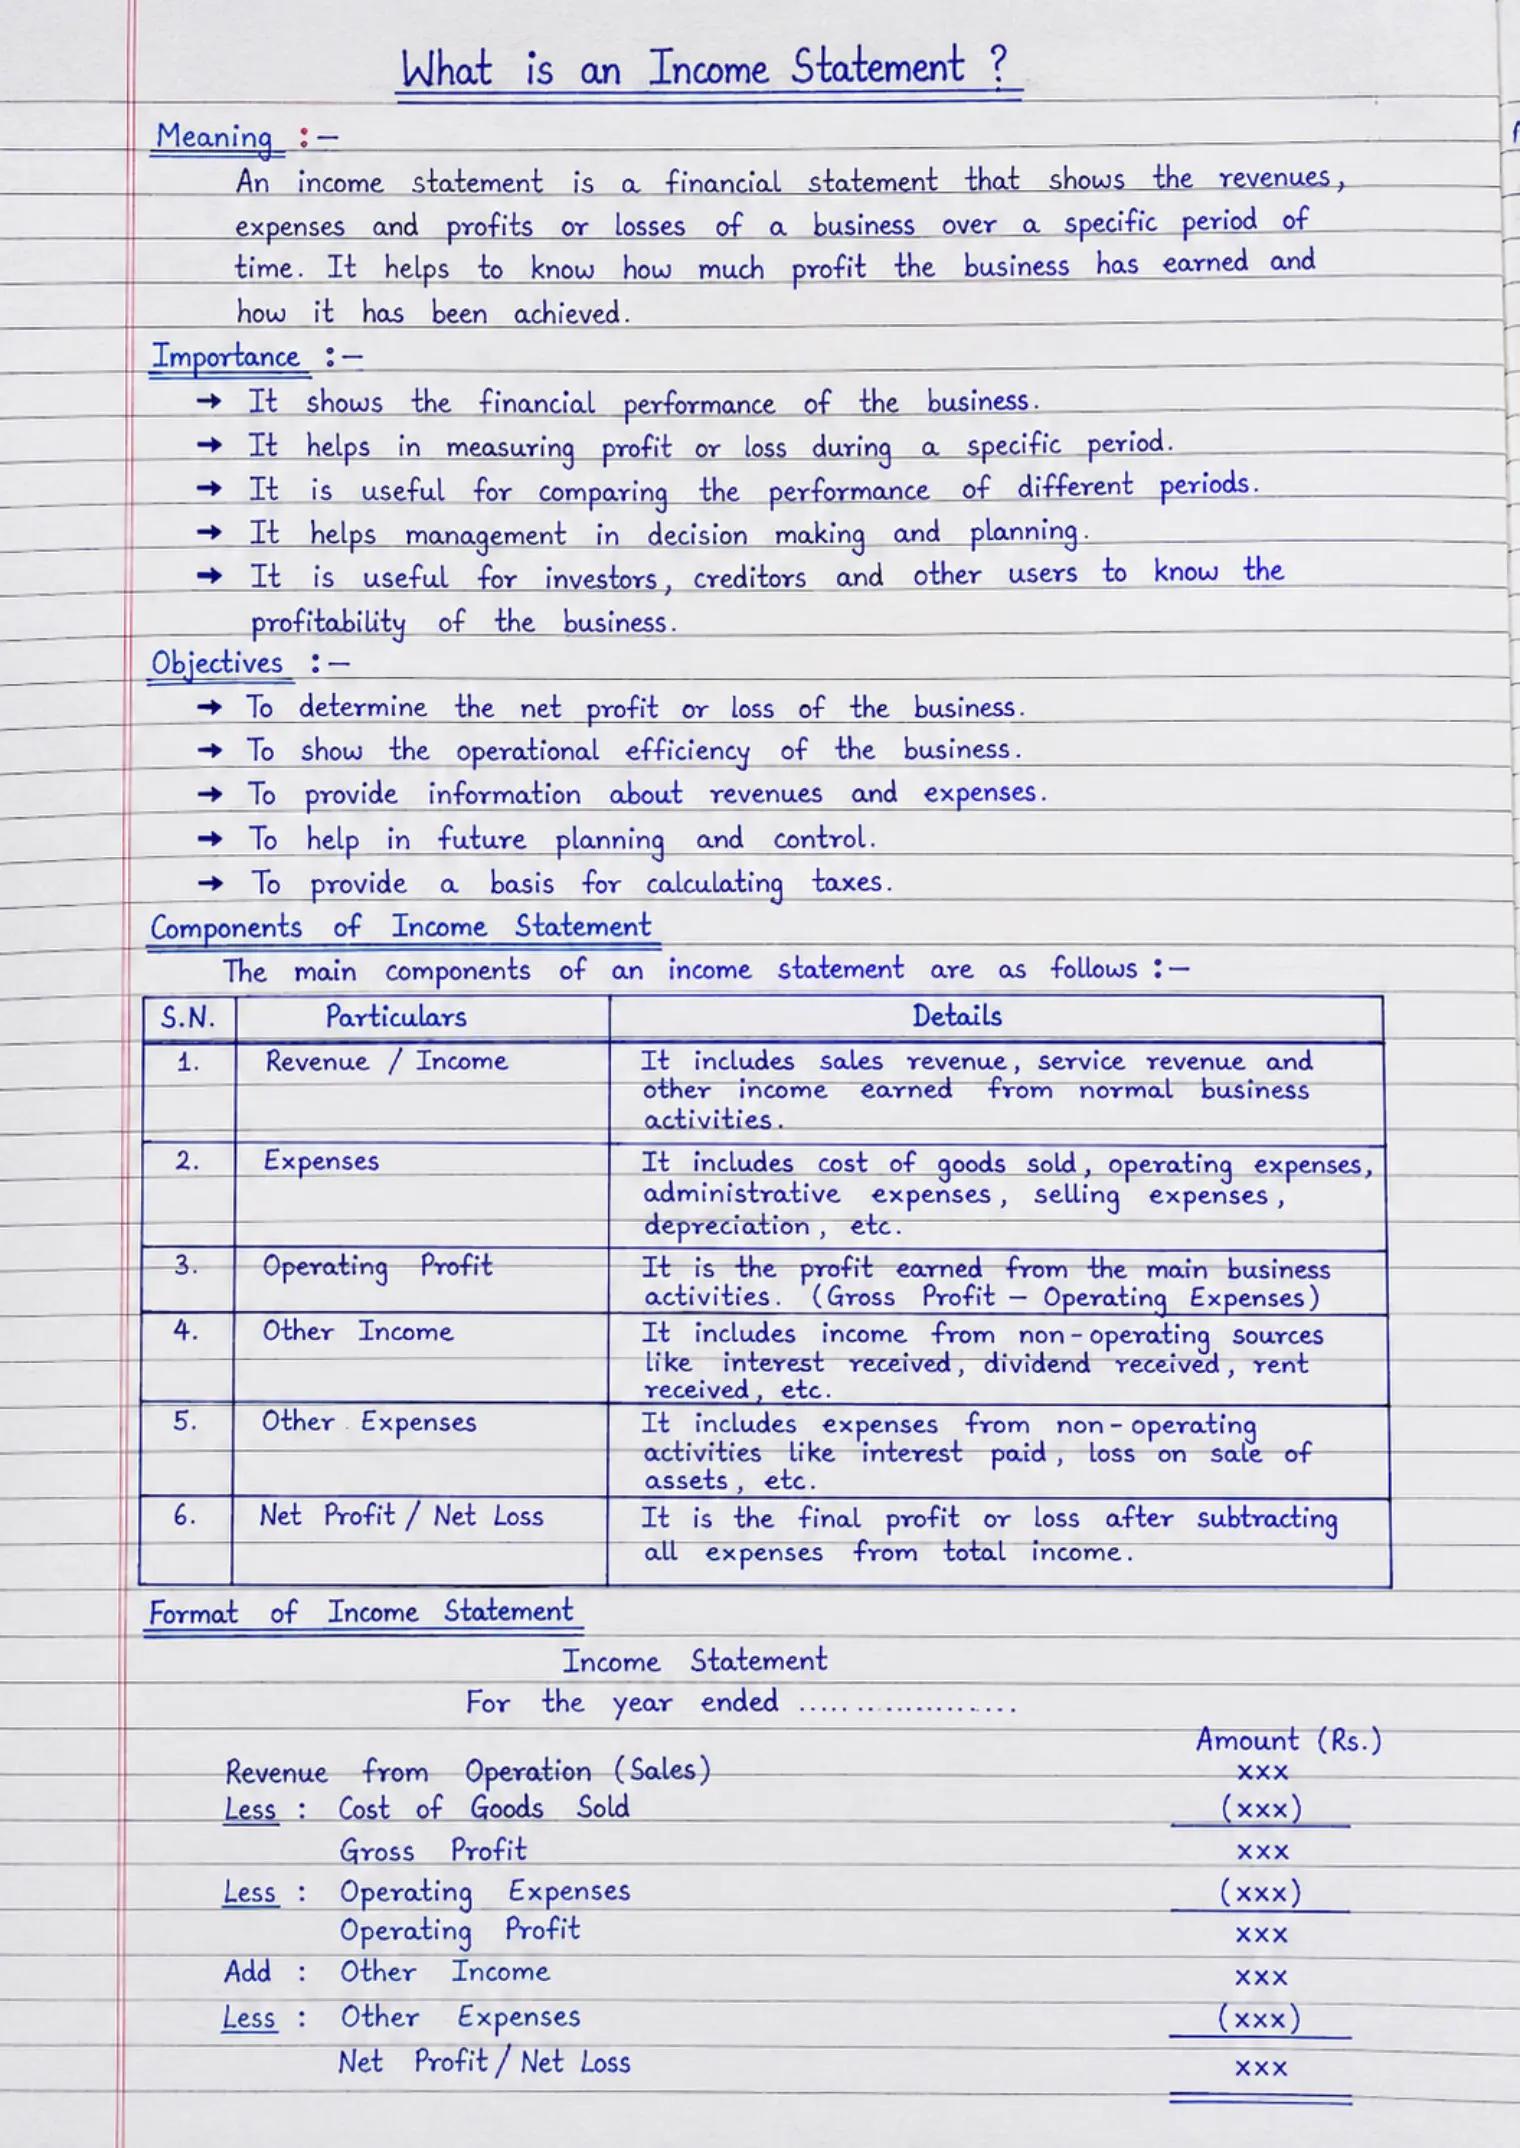 What is an Income Statement ?
Meaning :-
An income statement is a financial statement that shows the revenues,
expenses and profits or losses of a business over a specific period of
time. It helps to know how much profit the business has earned and
how it has been achieved.
Importance :-
→ It shows the financial performance of the business.
→ It helps in measuring profit or loss during a specific period.
→ It is useful for comparing the performance of different periods.
→ It helps management in decision making and planning.
→ It is useful for investors, creditors and other users to know the
profitability of the business.
Objectives :-
→ To determine the net profit or loss of the business.
→ To show the operational efficiency of the business.
→ To provide information about revenues and expenses.
→ To help in future planning and control.
→ To provide a basis for calculating taxes.
Components of Income Statement
The main components of an income statement are as follows :-
S.N. Particulars Details
1. Revenue / Income It includes sales revenue, service revenue and
other income earned from normal business
activities.
2. Expenses It includes cost of goods sold, operating expenses,
administrative expenses, selling expenses,
depreciation, etc.
3. Operating Profit It is the profit earned from the main business
activities. (Gross Profit – Operating Expenses)
4. Other Income It includes income from non-operating sources
like interest received, dividend received, rent
received, etc.
5. Other Expenses It includes expenses from non-operating
activities like interest paid, loss on sale of
assets, etc.
6. Net Profit / Net Loss It is the final profit or loss after subtracting
all expenses from total income.
Format of Income Statement
Income Statement
For the year ended .....................
Amount (Rs.)
Revenue from Operation (Sales) xxx
Less : Cost of Goods Sold (xxx)
Gross Profit xxx
Less : Operating Expenses (xxx)
Operating Profit xxx
Add : Other Income xxx
Less : Other Expenses (xxx)
Net Profit / Net Loss xxx